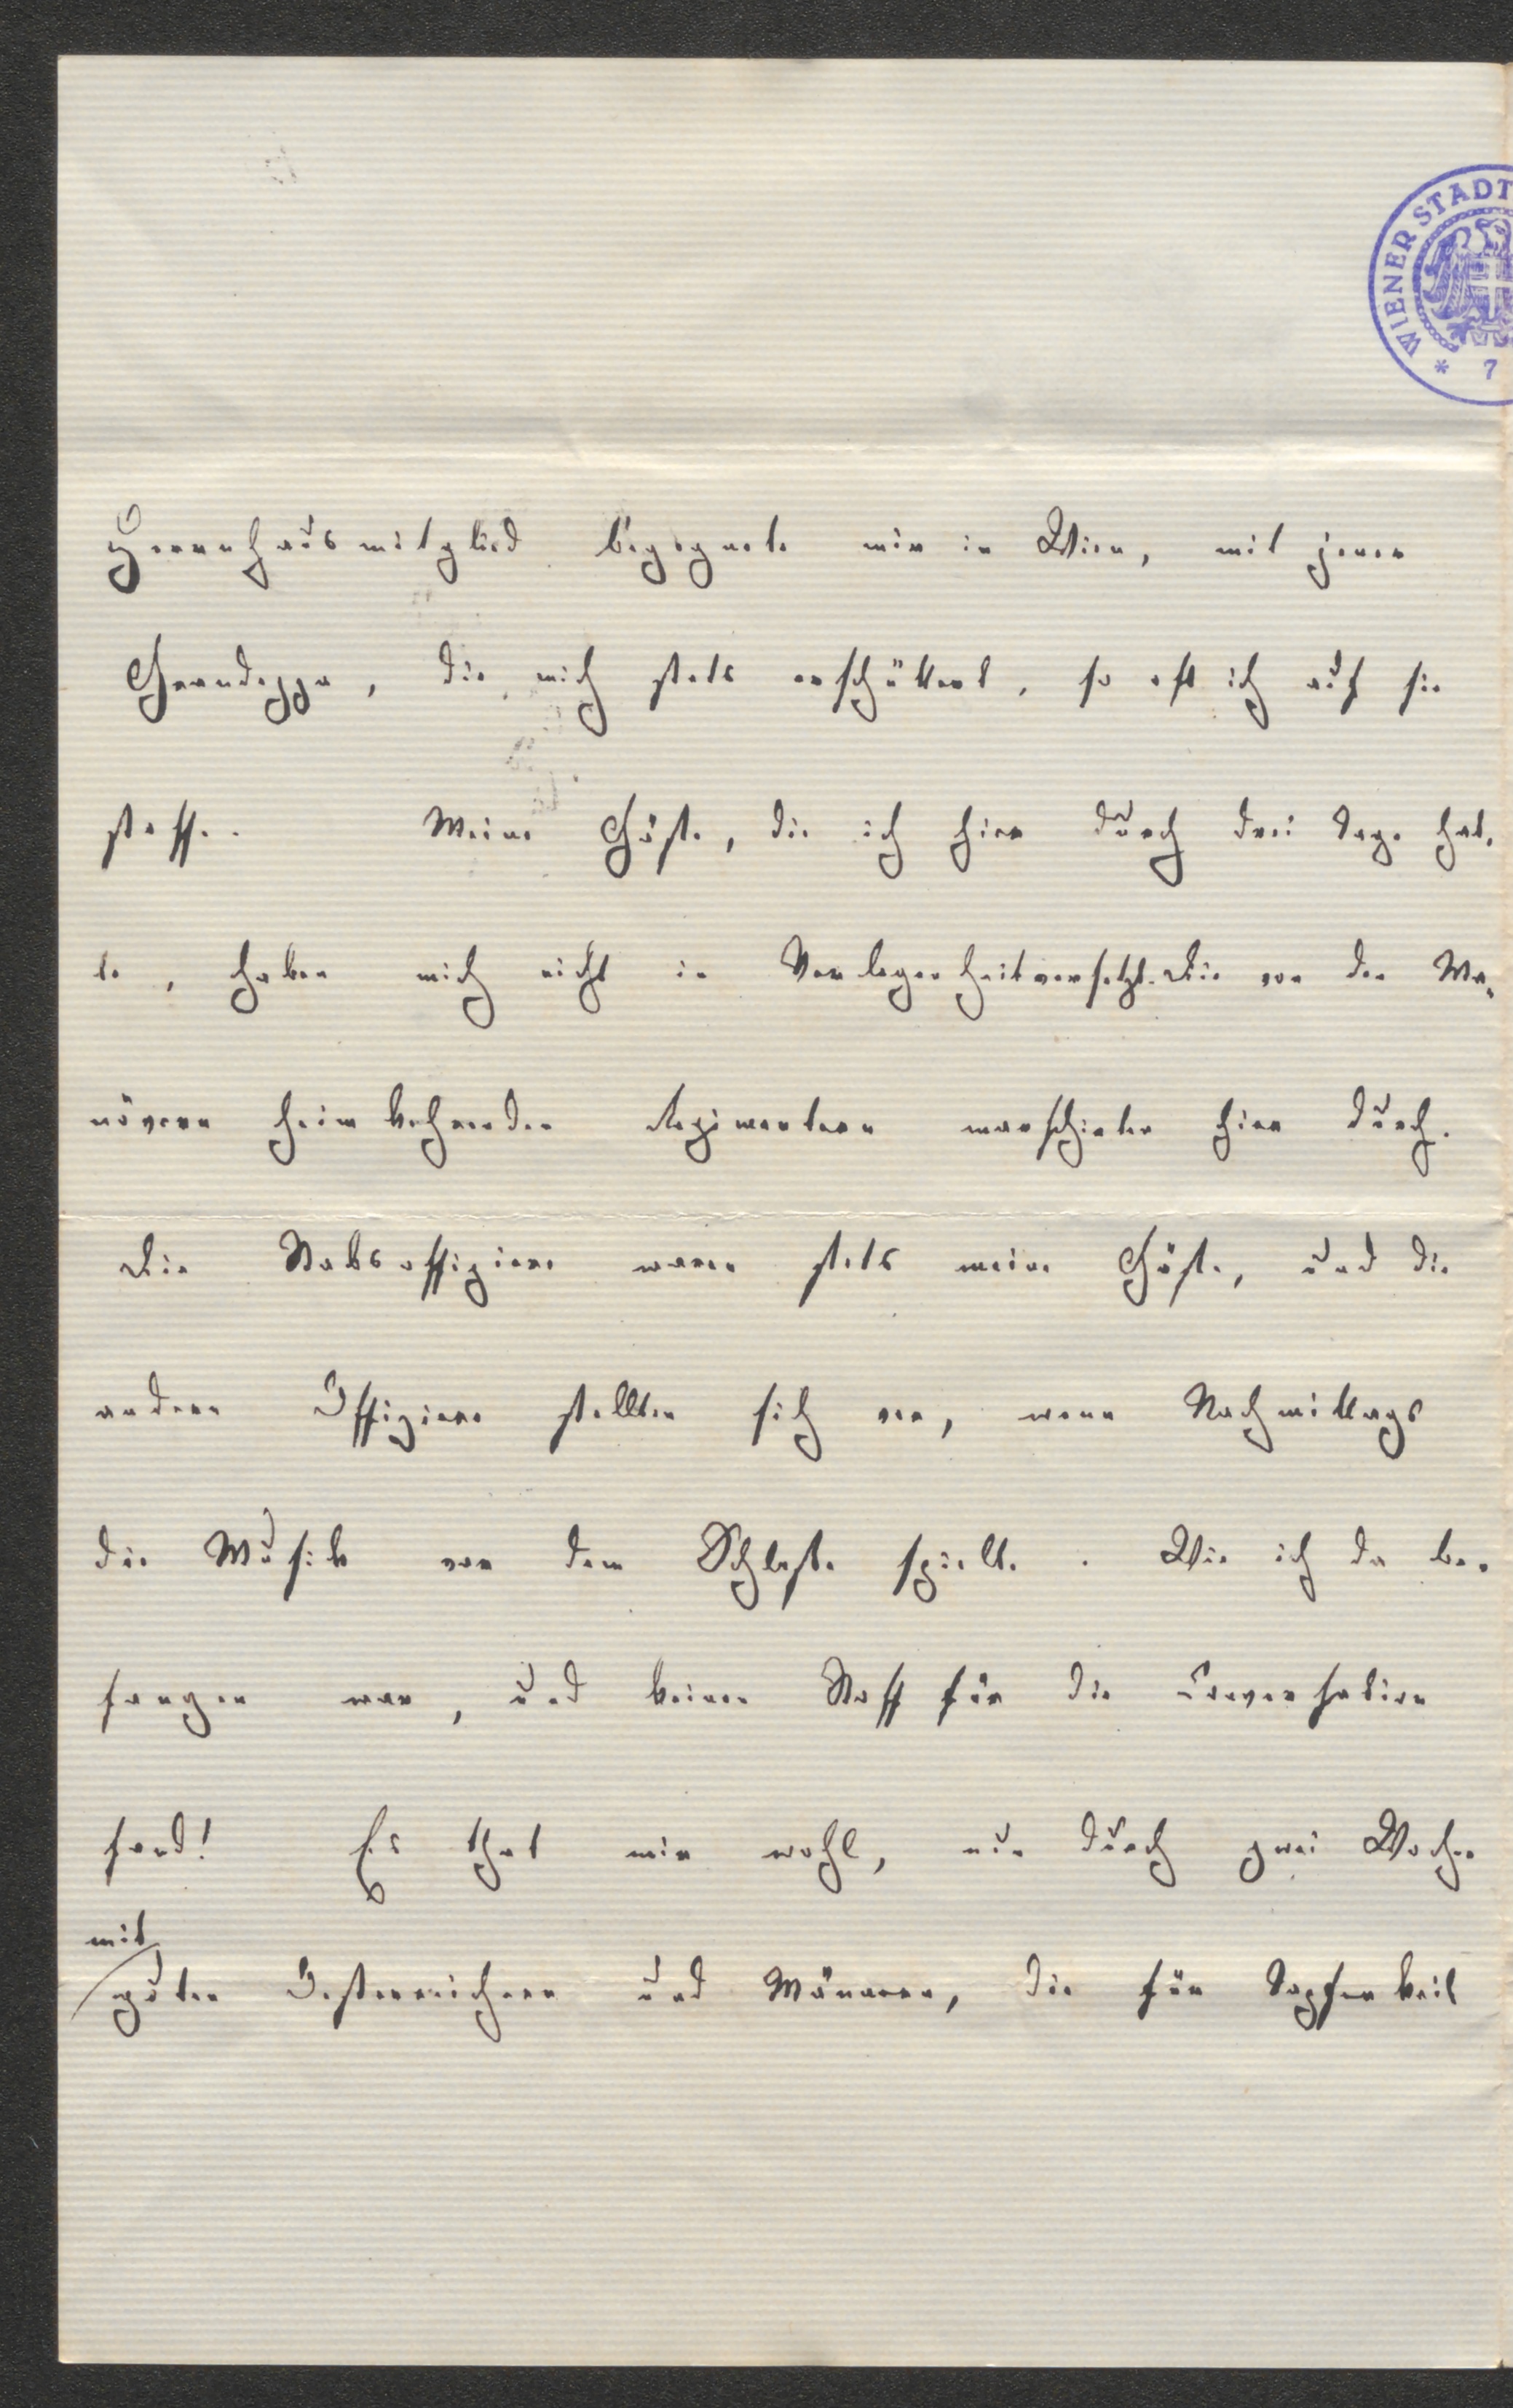 WIENER STADT
* 7
Herrenhausmitglied begegnete mir in Wien, mit jener
Grandezza, die mich stets erschüttert, so oft ich auf sie
stoße. Meine Gäste, die ich hier durch drei Tage hat-
te, haben mich nicht in Verlegenheit versetzt. Die von den Ma-
növern heimkehrenden Regimentern marschirten hier durch.
Die Stabsoffiziere waren stets meine Gäste, und die
andern Offiziere stellten sich vor, wenn Nachmittags
die Musik vor dem Schloße spielte. Wie ich da be-
fangen war, und keinen Stoff für die Conversation
fand! Es that mir wohl, nun durch zwei Wochen
mit
guten Oesterreichern und Männern, die für Tapferkeit